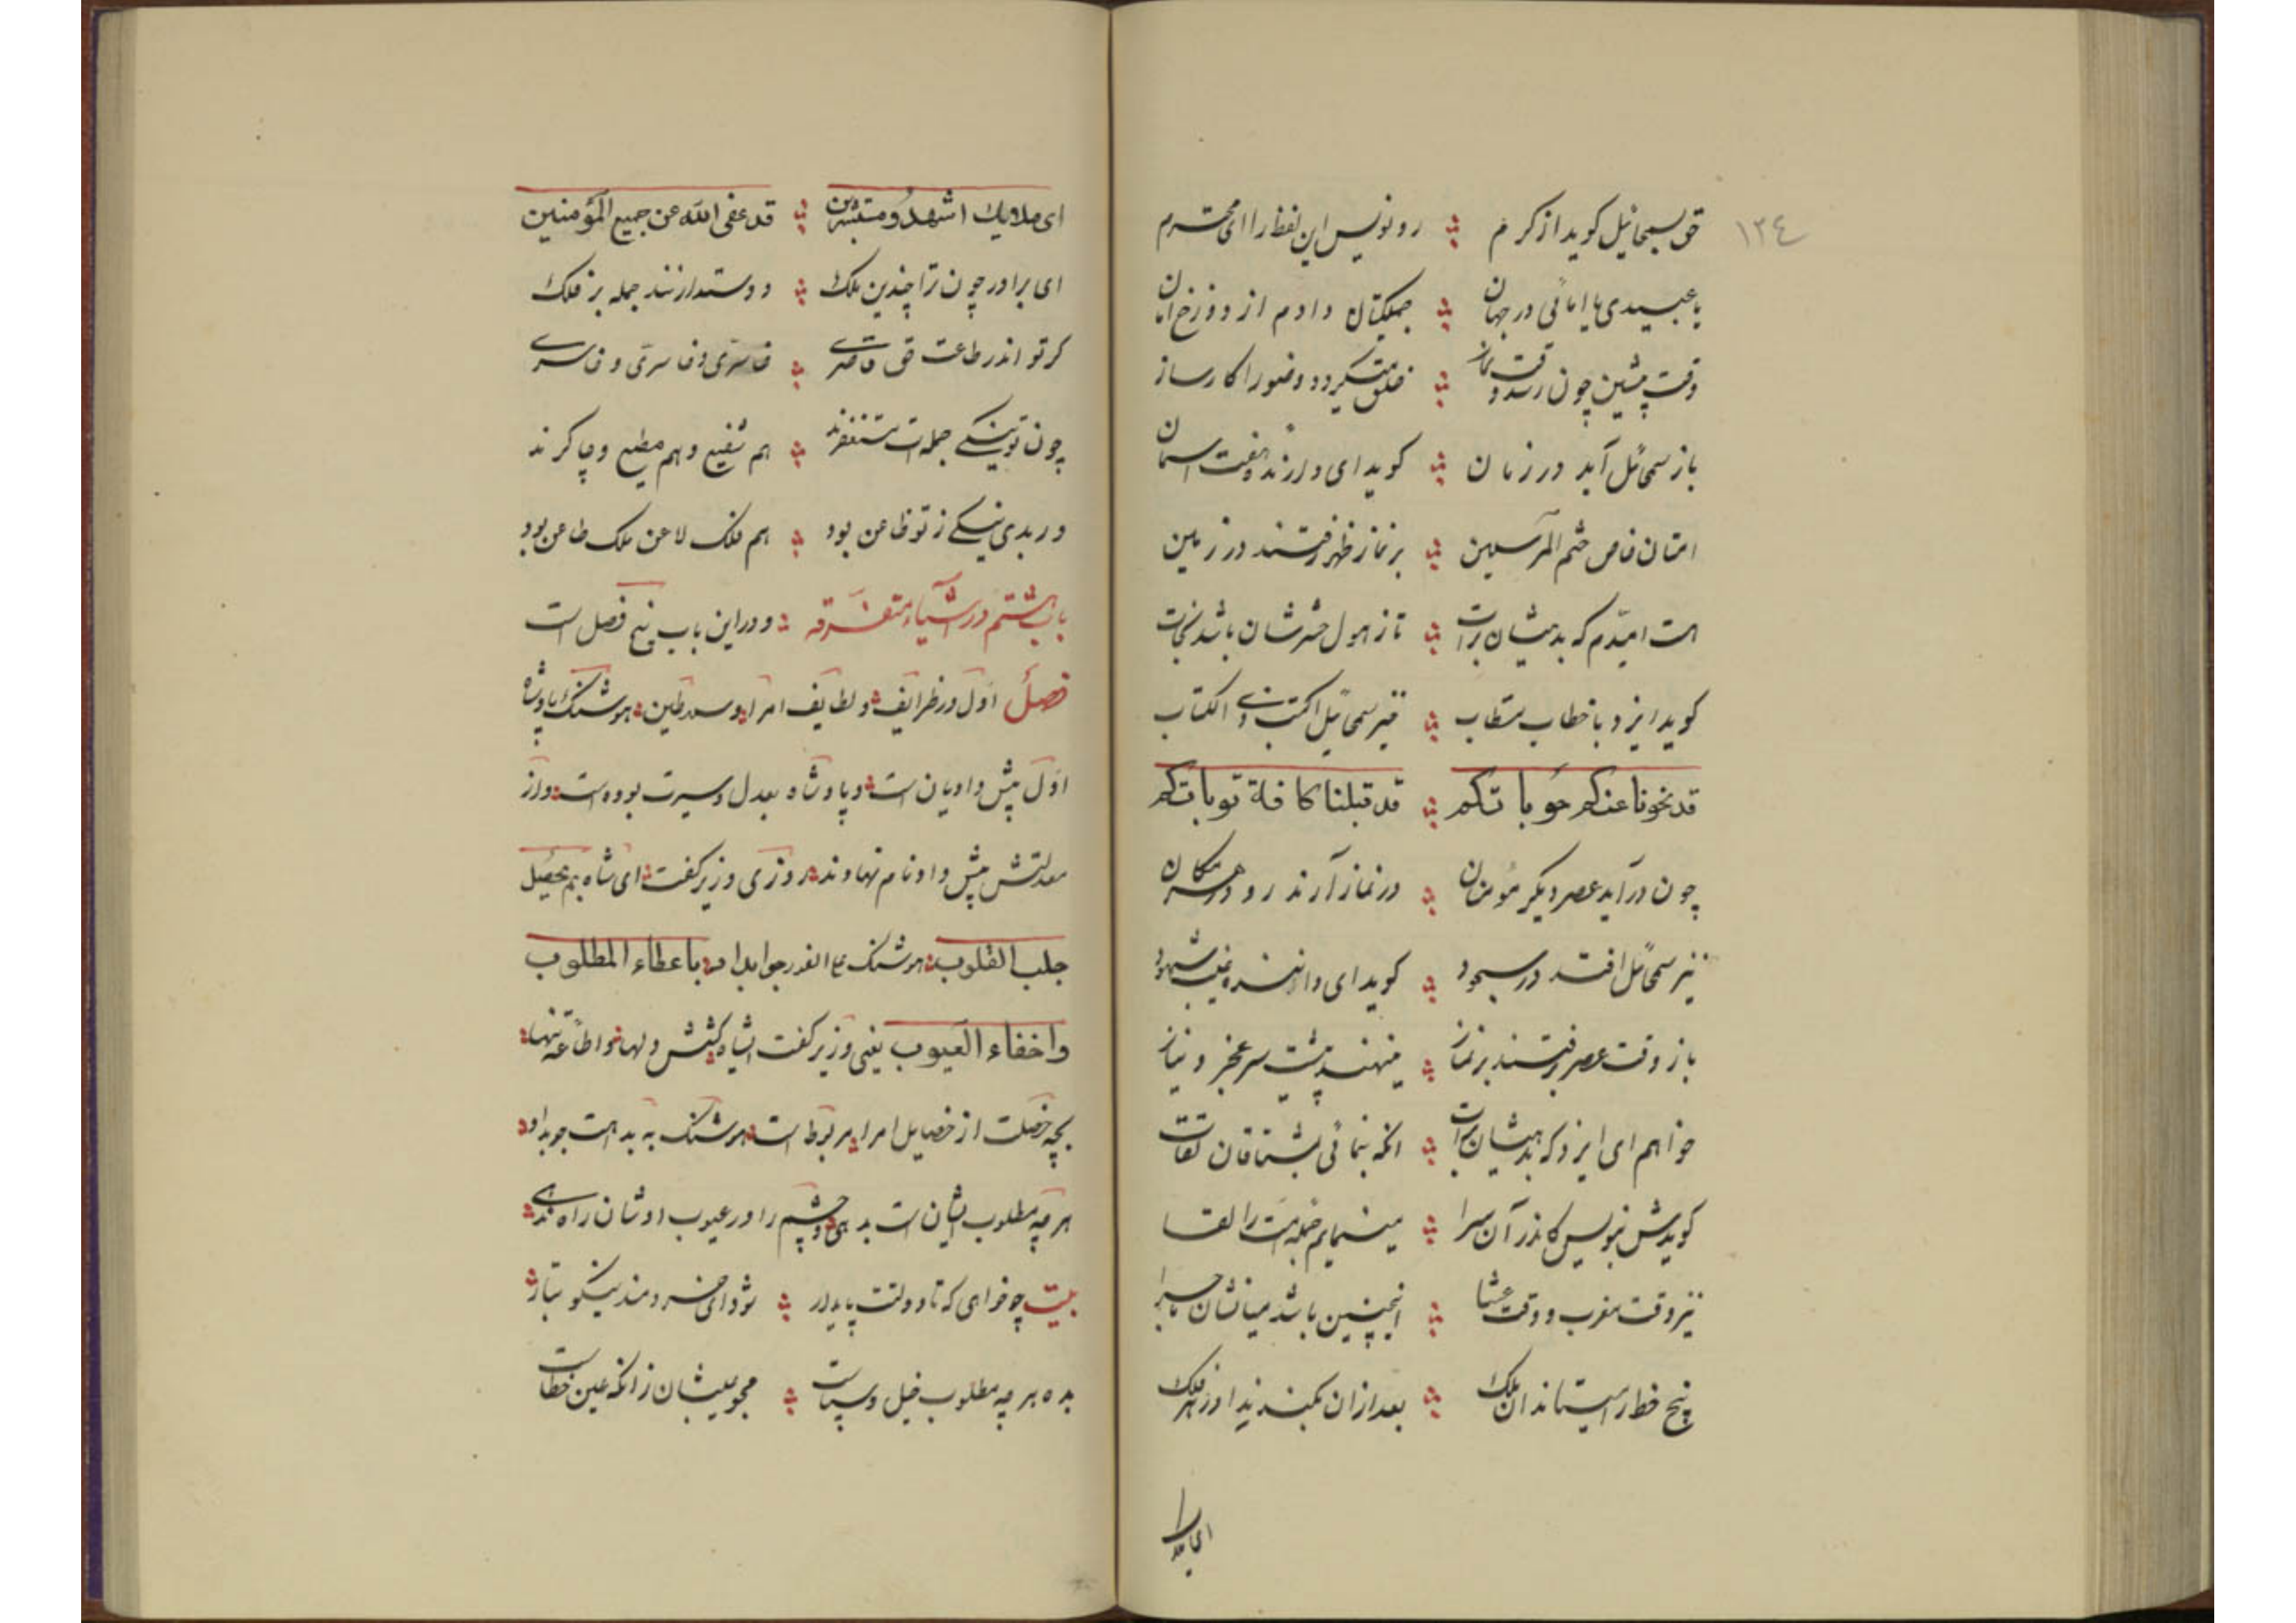 ١٣٤
حق بسمحائیل کوید از کرم ؞ رو نویس این لفظ را ای محترم
یا عبیدی یا امائی در جهان ؞ جملکیتان دادم از دوزخ امان
وقت پیشین چون رسد وقت نماز ؞ خلق میکردد وضو را کارساز
باز سمحائل آید در زمان ؞ کوید ای دارنده هفت اسمان
امتان خاص ختم المرسلین ؞ بر نماز ظهر رفتند در زمین
هست امیدم که بدهیشان برات ؞ تا ز هول حشرشان باشد نجات
کوید ایزد با خطاب مستطاب ؞ نیز سمحائیل اکتب ذی الکتاب
قد نحونا عنکم حوباتکم ؞ قد قبلنا کافة توباتکم
چون در آید عصر دیکر مؤمنان ؞ در نماز آرند رو در هر مکان
نیز سمحائل افتد در سجود ؞ کوید ای داننده غیب شهود
باز وقت عصر رفتند بر نماز ؞ مینهند پیشت سر عجز و نیاز
خواهم ای ایزد که بدهیشان برات ؞ انکه بنمائی بمشتاقان لقات
کویدش بنویس کاندر آن سرا ؞ مینمایم جمله امت را لقا
نیز وقت مغرب و وقت عشا ؞ اینچنین باشد میانشان ماجرا
پنج خط را میستاند آن ملک ؞ بعد از آن یکند ندا در نه فلک
ای ملایک
ای ملایك اشهدو مستبشرین ؞ قد عفی الله عن جمیع المؤمنین
ای برادر چون ترا چندین ملک ؞ دوستدارنند جمله بر فلک
کر تو اندر طاعت حق قاصری ؞ خاسری و خاسری و خاسری
چون تو نیکی جملهات مستغفرند ؞ هم شفیع و هم مطیع و چاکرند
ور بدی نیکی ز تو ظاعن بود ؞ هم فلک لاعن ملک طاعن بود
باب هشتم در اشیاء متفرقه ؞ و در این باب پنج فصل است
فصل اول در ظرایف و لطایف امرا و سلاطین هوشنک پادشاه
اول پیش دادیان است و پادشاه بعدل و سیرت بوده است و از
معدلتش پیش داد نام نهادند روزی وزیر کفت ای شاه بم تحصیل
جلب القلوب هوشنک علی الفور جواب داد باعطاء المطلوب
واخفاء العیوب یعنی وزیر کفت ایشاه کشش دلها و اطاعه تنها
بچه خصلت از خصایل امرا مربوط است هوشنک به بداهت جوبداد
هر چه مطلوب ایشان است بدهی و چشم را در عیوب اوشان راه ندهی
بیت چو خواهی که تا دولت پایدار ؞ شود ای خردمند نیکو تبار
بده هر چه مطلوب خیل و سپاست ؞ مجو عیبشان زانکه عین خطاست